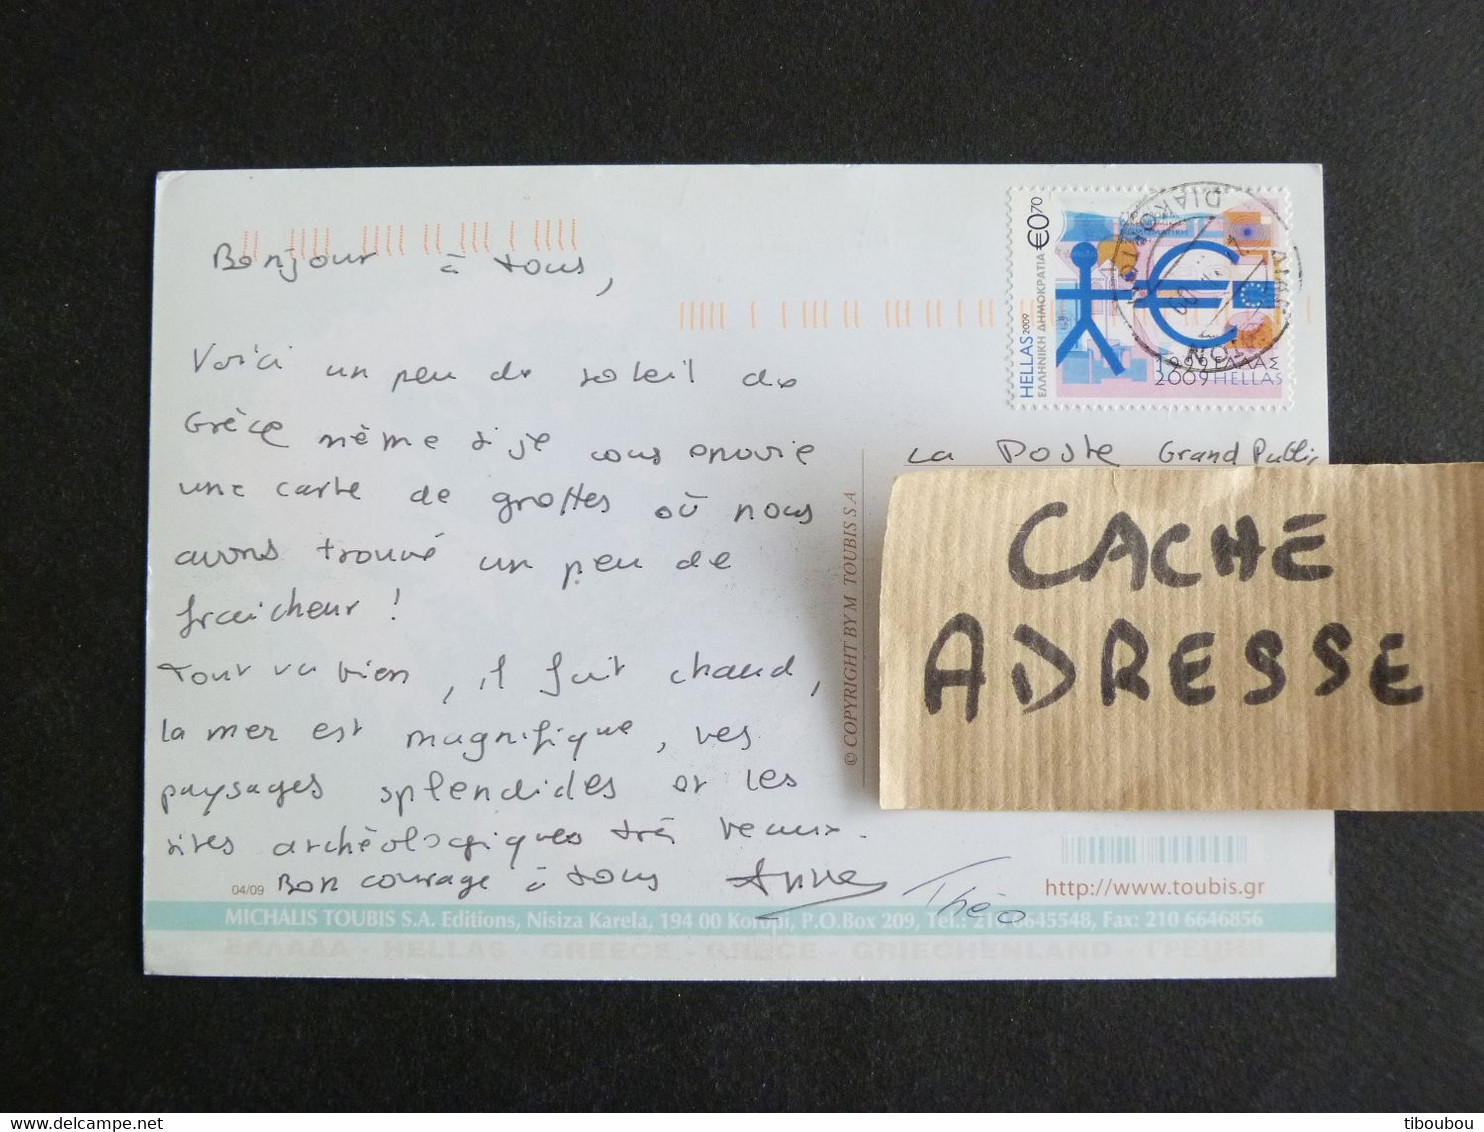 Bonjour à tous,
Voici un peu de soleil de
Grèce même si je vous envoie
une carte de grottes où nous
avons trouvé un peu de
fraicheur !
Tout va bien, il fait chaud,
la mer est magnifique, les
paysages splendides et les
sites archéologiques très beaux.
Bon courage à tous Anne
Théo
€0,70
HELLAS 2009
ΕΛΛΗΝΙΚΗ ΔΗΜΟΚΡΑΤΙΑ
1999 ΕΛΛΑΣ
2009 HELLAS
La Poste Grand Public
CACHE
ADRESSE
© COPYRIGHT BY M TOUBIS S.A
04/09
http://www.toubis.gr
MICHALIS TOUBIS S.A. Editions, Nisiza Karela, 194 00 Koropi, P.O.Box 209, Tel.: 210 6645548, Fax: 210 6646856
ΕΛΛΑΔΑ - HELLAS - GREECE - GRÈCE - GRIECHENLAND - ГРЕЦИЯ
tiboubou